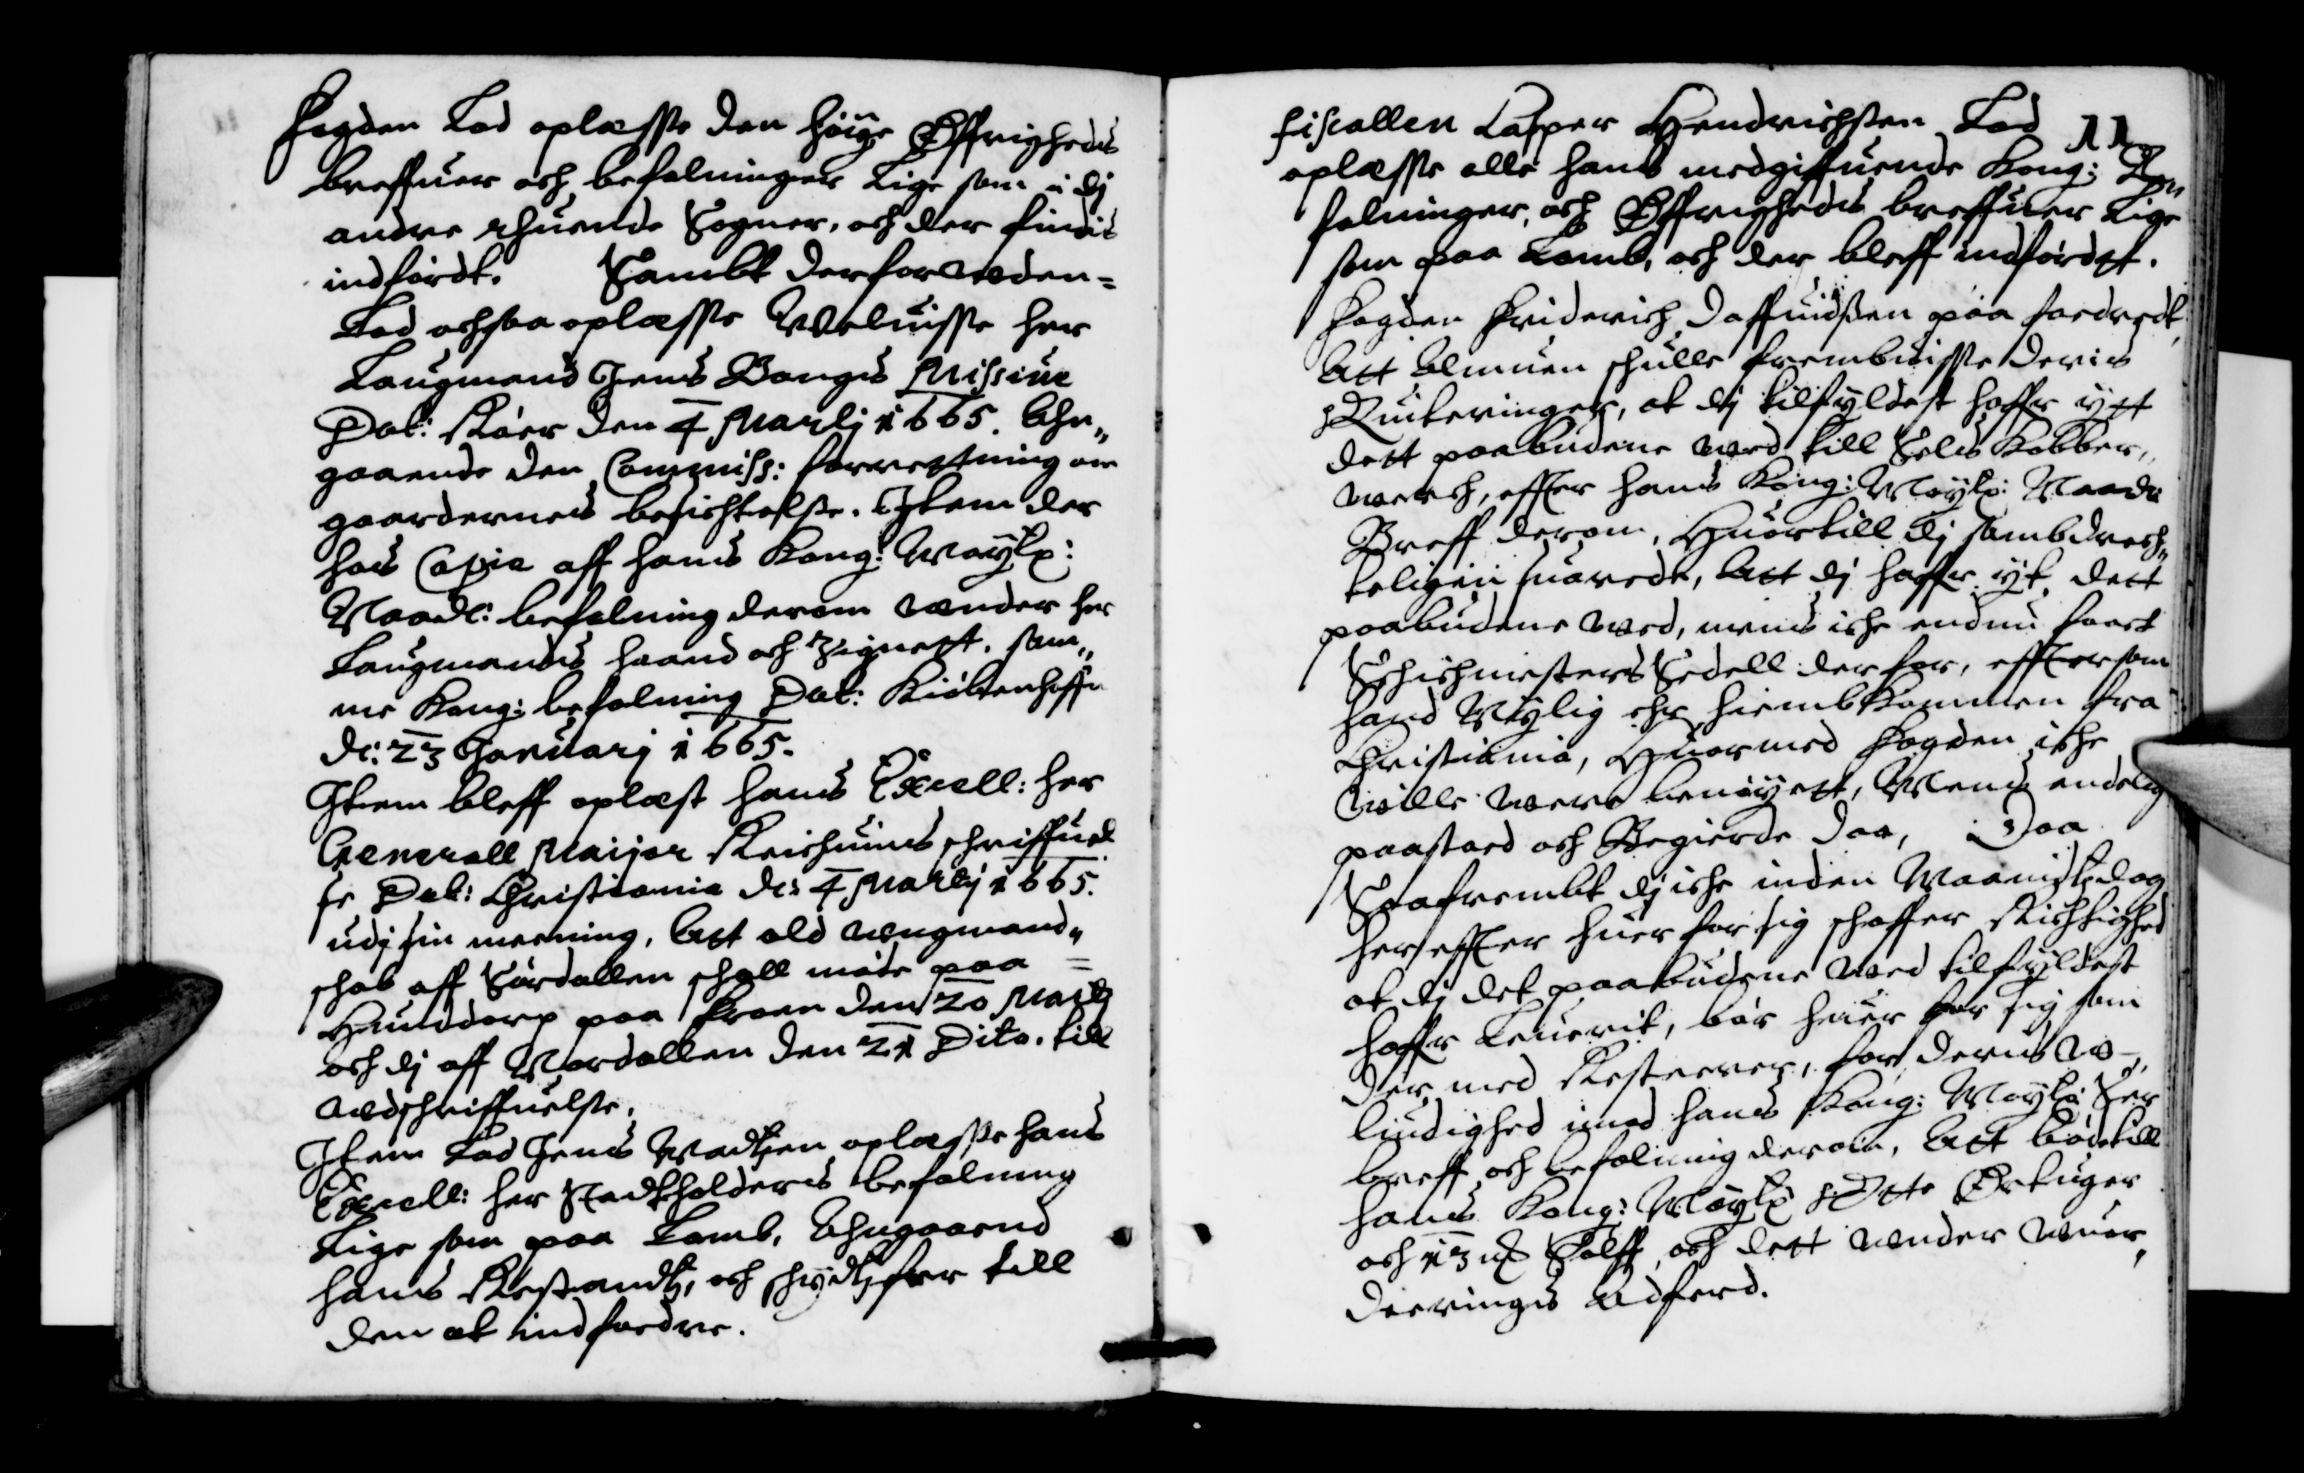 Fogden Lod oplæsse den höige Øffrigheds
breffuer och befalninger Lige som i dj
andre  Sogner, och der findis
indfördt. Sambt derforuden=
Lod ochsaa oplæsse Weluisse her
Laugmand Jens Bangs Missive
Dat: Sköer den 4 Martij 1665. Ahn„
gaaende den Commiss: forrettning om
gaardernes besichtelse. Item der
hos Copie aff hans Kong: Maÿtz:
Naadl: befalning derom under her
Laugmands haand och Zignett. sam„
me Kong: befalning Dat: Kiöbenhaffn
d: 23 Januarj 1665.
Item bleff oplæst hans Excell: her
Generall Maijor Reichuins schriffuel
se Dat: Christiania d: 4 Martij 1665.
udj sin meening, Att ald ungmand„
schab aff Sördallen schall möde paa =
Hunddorp paa Froen den 20 Martij
och dj aff Nordallen den 21 Dito. till
udschriffuelse.
Item Lod Jens Madtzen oplæsse hans
Excell: her Stadtholders befalning
Lige som paa Lomb, Ahngaaend
hans Restandtz, och schÿdtzfær till
den at indfordre.
11
fiscallen Casper Hendrichsen Lod
oplæsse alle hans medgiffuende Kong: Be„
falninger, och Øffrigheds breffuer Lige
som paa Lomb, och der bleff indfördtt.
Fogden Friderich Daffuidsen paa foedredt
Att Almuen schulle frembuisse deris
Quiteringer, at dj tilfyldest haffr ÿtt
dett paabudene ued till Sels Kobber„
werch, effter hans Kong: Maÿtz: Naadi
Breff derom, Huortill dj sambdrech„
teligen suarede, Att dj haffr ÿt dett
paabudene ued, mens iche endnu faaet
Schichmesters Sedell derfor, effttersom
hand Nÿlig ehr hiembKommen fra
Christiania, Huormed Fogden iche
wille were benöyett, Mens endelig
paastoed och Begierde Dom, Daa
Saafrembt dj iche inden Maanitzdag
her effter huer for sig schaffer Richtighed
at dj det paabudene ued tilfyldest
haffr Leuerit, bör huer for sig som
der med Resterer, for deris W„
liudighed imod hans Kong: Maytz: Ser
breff och befalning derom, Att böde till
hans Kong: Maÿtz 8 Ortuger
och 13 mk Sölff, och dett under wuor„
deerings Adferd.